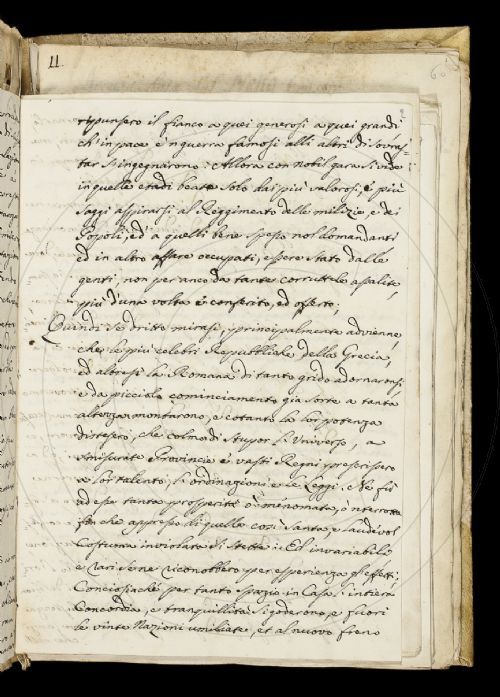 11.
60
ripunsero il fianco a quei generosi a quei grandi
ch'in pace e'n guerra famosi alli altri di sovras=
tar s'ingegnarono: Allora con nobil gara si vide
in quelle etadi beate solo dai più valorosi, e più
saggi aspirarsi al Reggimento delle milizie e dei
Popoli, ed a quelli bene spesso nol domandanti
ed in altro affare occupati, essere stato dalle
genti, non per anco da tante corruttele assalite,
più d'una volta è conferito, ed offerto;
Quindi se dritto mirasi, principalmente advienne,
che le più celebri Repubbliche della Grecia,
ed altresì la Romana di tanto grido adornaronsi
e da picciolo cominciamento già sorte a tanta
altezza montarono, e cotanto la lor potenza
distesero, che colmo di stupor l'Universo, a
smisurate Provincie e vasti Regni prescrissero
a lor talento, l'ordinazioni e le Leggi. Ne fù
ad esse tanta prosperità ò menomata, ò interrotta
fin che appresso di quelle così santa, e laudevol
Costuma inviolata di stette: Ed invariabile
e vari sene riconobbero per esperienza gl'effetti;
Conciosiaché per tanto spazio in Casa l'intiera
Concordia, e tranquillità si goderono, e fuori
le vinte Nazioni umiliate, et al nuovo freno